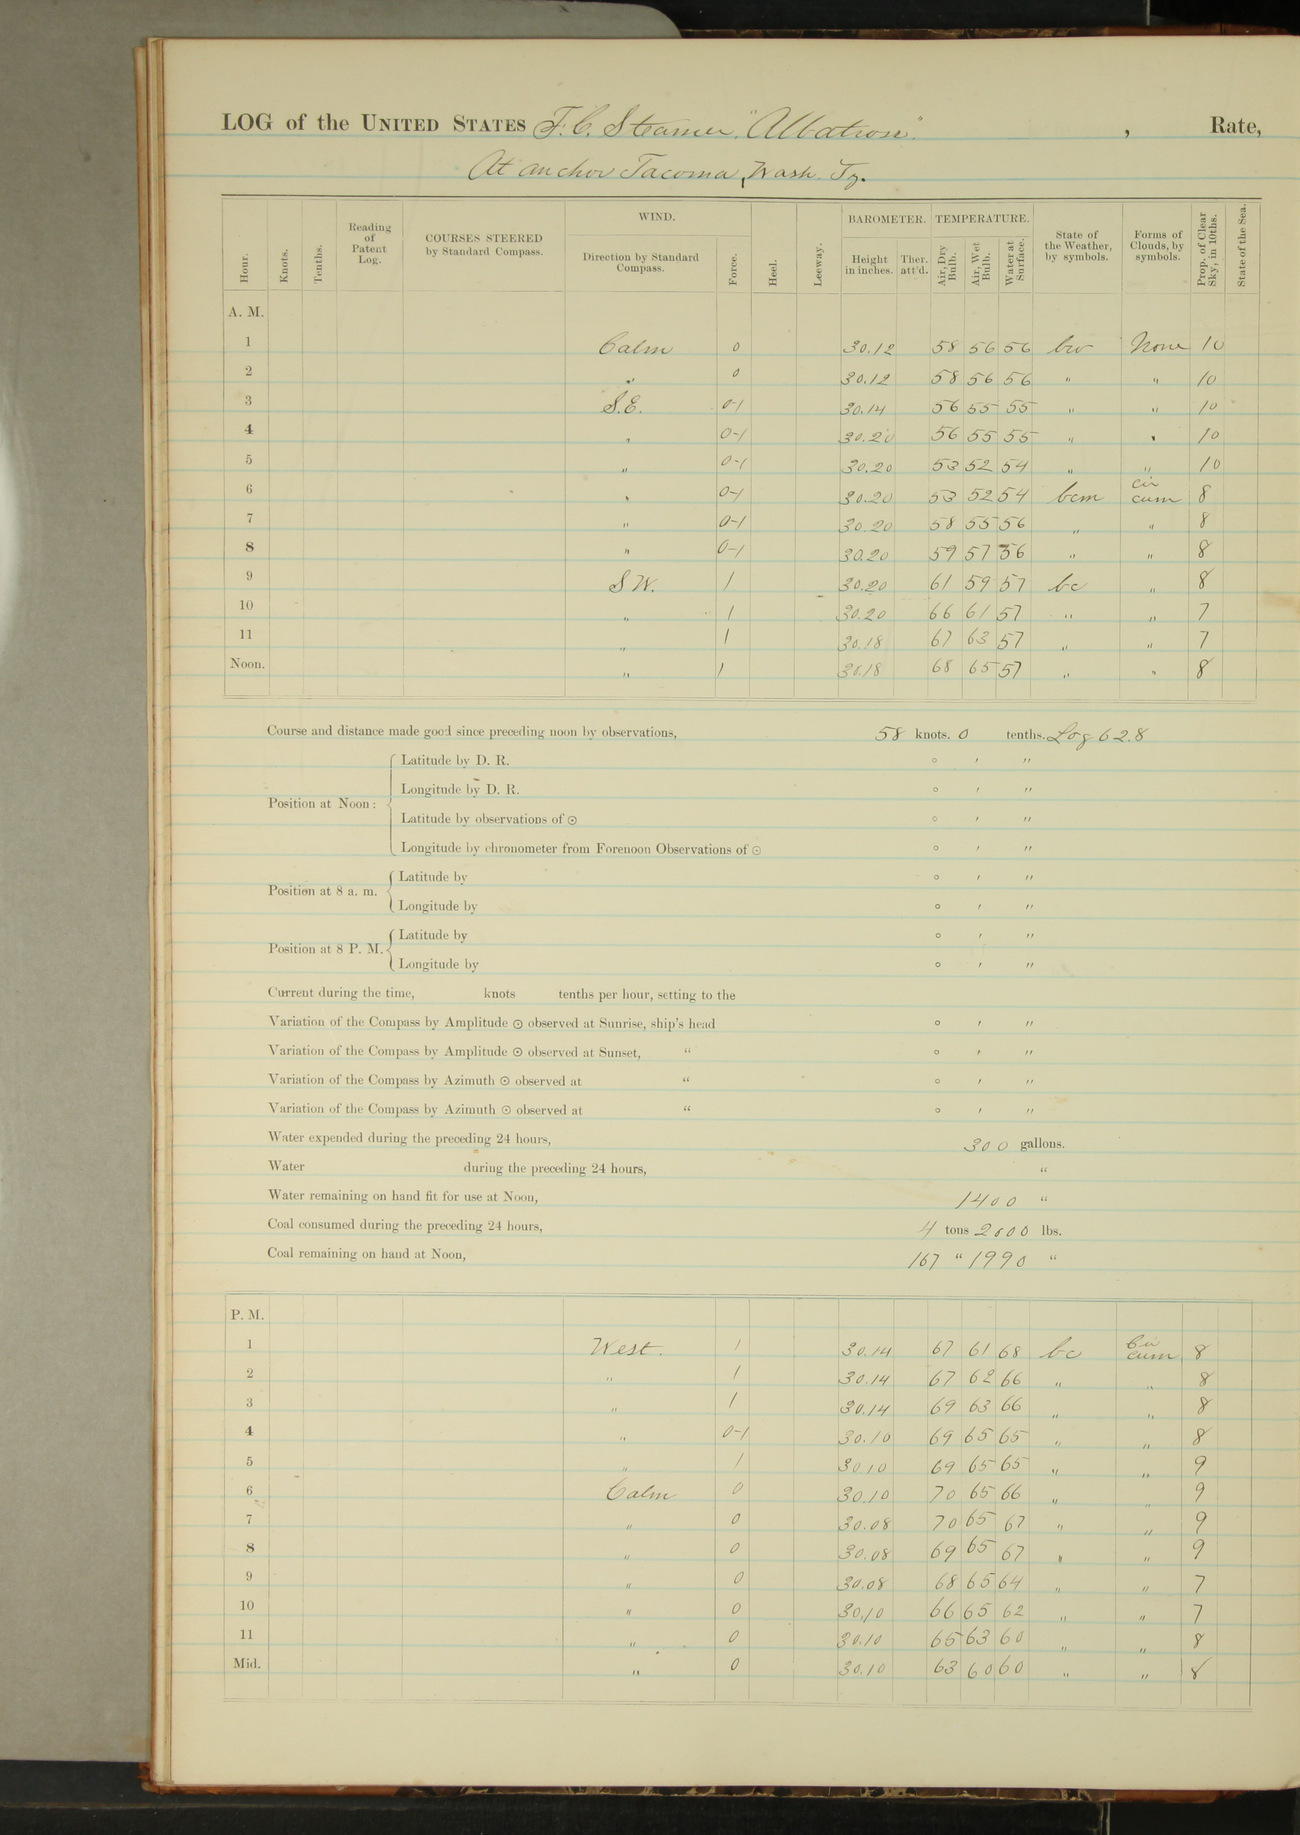 LOG of the UNITED STATES F.C. Steamer "Albatross", Rate,
At anchor Tacoma, Wash. Ty.
Hour. Knots. Tenths. Reading of Patent Log. COURSES STEERED by Standard Compass. WIND. Direction by Standard Compass. Force. Heel. Leeway. BAROMETER. Height in inches. Ther. att'd. TEMPERATURE. Air, Dry Bulb. Air, Wet Bulb. Water at Surface. State of the Weather, by symbols. Forms of Clouds, by symbols. Prop. of Clear Sky, in 10ths. State of the Sea.
A. M.
1 Calm 0 30.12 58 56 56 bw None 10
2 " 0 30.12 58 56 56 " " 10
3 S.E. 0-1 30.14 56 55 55 " " 10
4 " 0-1 30.20 56 55 55 " " 10
5 " 0-1 30.20 53 52 54 " " 10
6 " 0-1 30.20 53 52 54 bcm cir cum 8
7 " 0-1 30.20 58 55 56 " " 8
8 " 0-1 30.20 59 57 56 " " 8
9 S W. 1 30.20 61 59 57 bc " 8
10 " 1 30.20 66 61 57 " " 7
11 " 1 30.18 67 63 57 " " 7
Noon. " 1 30.18 68 65 57 " " 8
Course and distance made good since preceding noon by observations, 58 knots. 0 tenths. Log 62.8
Position at Noon:
Latitude by D. R. ° ′ ″
Longitude by D. R. ° ′ ″
Latitude by observations of ☉ ° ′ ″
Longitude by chronometer from Forenoon Observations of ☉ ° ′ ″
Position at 8 a. m.
Latitude by ° ′ ″
Longitude by ° ′ ″
Position at 8 P. M.
Latitude by ° ′ ″
Longitude by ° ′ ″
Current during the time, knots tenths per hour, setting to the
Variation of the Compass by Amplitude ☉ observed at Sunrise, ship's head ° ′ ″
Variation of the Compass by Amplitude ☉ observed at Sunset, " ° ′ ″
Variation of the Compass by Azimuth ☉ observed at " ° ′ ″
Variation of the Compass by Azimuth ☉ observed at " ° ′ ″
Water expended during the preceding 24 hours, 300 gallons.
Water during the preceding 24 hours, "
Water remaining on hand fit for use at Noon, 1400 "
Coal consumed during the preceding 24 hours, 4 tons 2000 lbs.
Coal remaining on hand at Noon, 167 " 1990 "
P. M.
1 West. 1 30.14 67 61 68 bc Cir cum 8
2 " 1 30.14 67 62 66 " " 8
3 " 1 30.14 69 63 66 " " 8
4 " 0-1 30.10 69 65 65 " " 8
5 " 1 30.10 69 65 65 " " 9
6 Calm 0 30.10 70 65 66 " " 9
7 " 0 30.08 70 65 67 " " 9
8 " 0 30.08 69 65 67 " " 9
9 " 0 30.08 68 65 64 " " 7
10 " 0 30.10 66 65 62 " " 7
11 " 0 30.10 65 63 60 " " 8
Mid. " 0 30.10 63 60 60 " " 8